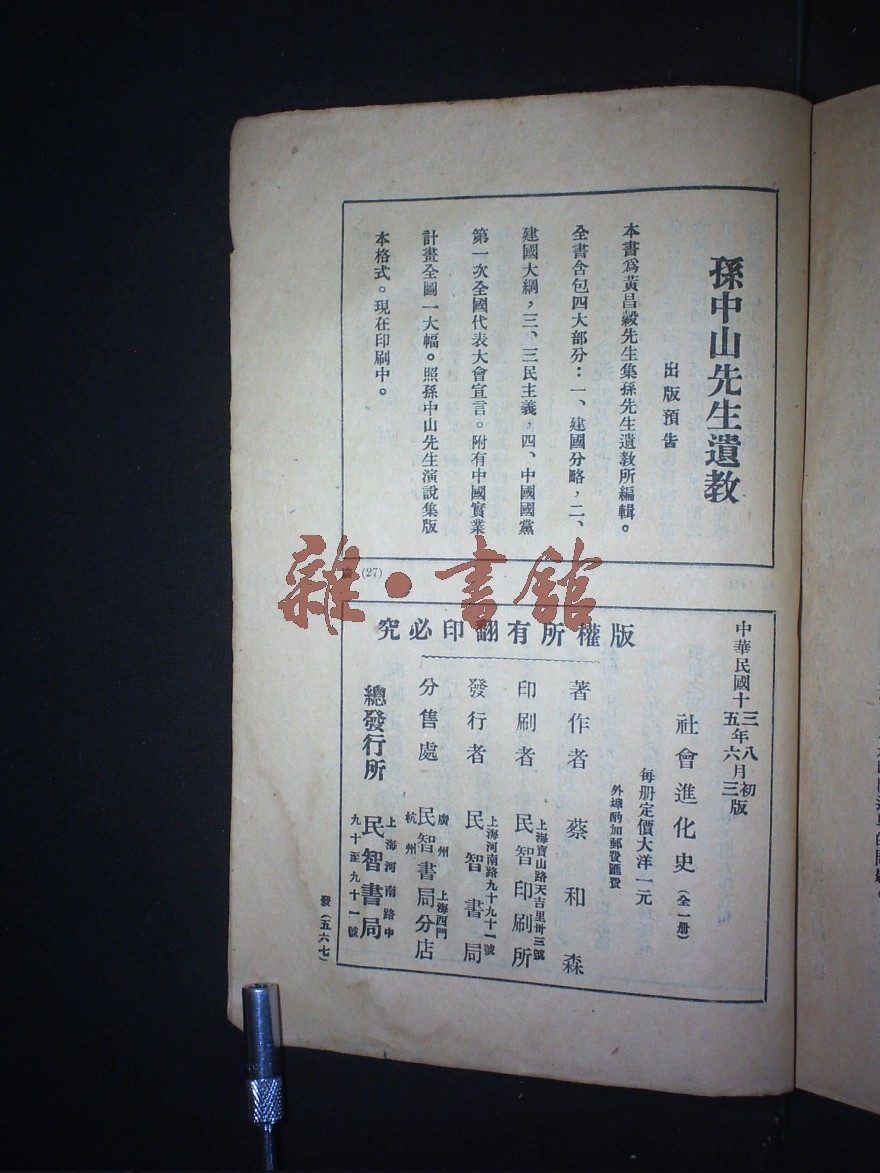 孫中山先生遺教
出版預告
本書爲黃昌穀先生集孫先生遺教所編輯。
全書含包四大部分：一、建國分略，二、
建國大綱，三、三民主義，四、中國國黨
第一次全國代表大會宣言。附有中國實業
計畫全圖一大幅。照孫中山先生演說集版
本格式。現在印刷中。
(27)
雜·書館
中華民國十三年八月初版
五年六月三版
社會進化史（全一册）
每册定價大洋一元
外埠酌加郵費匯費
版權所有翻印必究
著作者 蔡和森
上海寶山路天吉里卅三號
印刷者 民智印刷所
上海河南路九十九十一號
發行者 民智書局
廣州 上海西門
分售處 民智書局分店
杭州
上海河南路中
總發行所 民智書局
九十至九十一號
發（五六七）